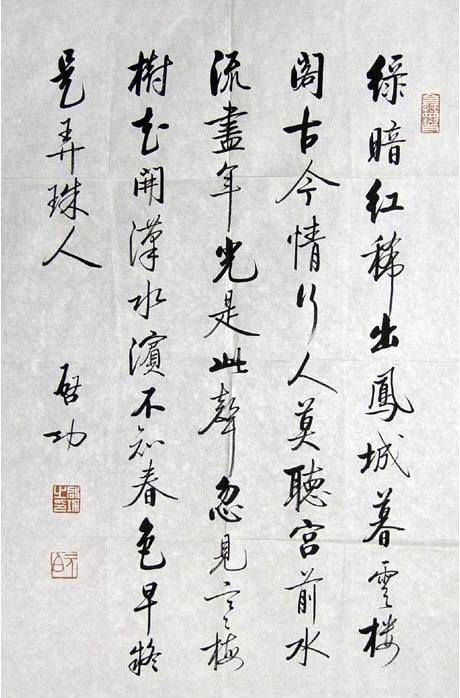 綠暗紅稀出鳳城暮雲楼
閣古今情行人莫聽宮前水
流盡年光是此聲忽見寒梅
樹花開漢水濱不知春色早疑
是弄珠人
啓功
元白